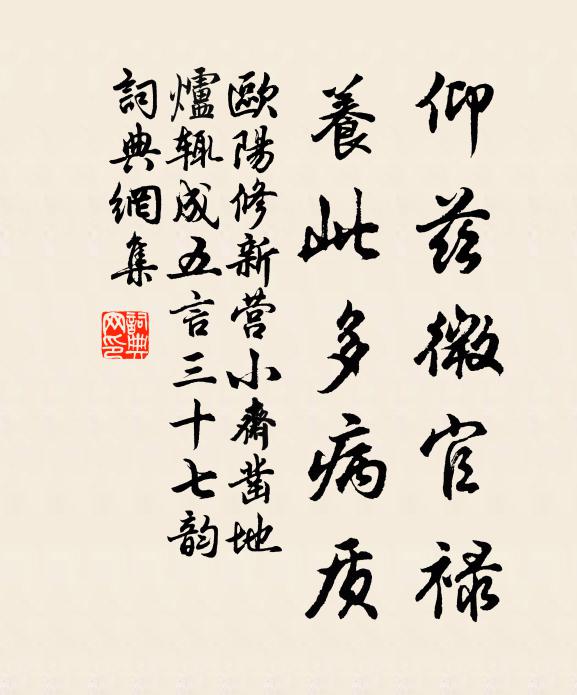 仰茲微官禄
養此多病质
歐陽修新营小齋凿地
爐輒成五言三十七韵
詞典網集
詞典
网印